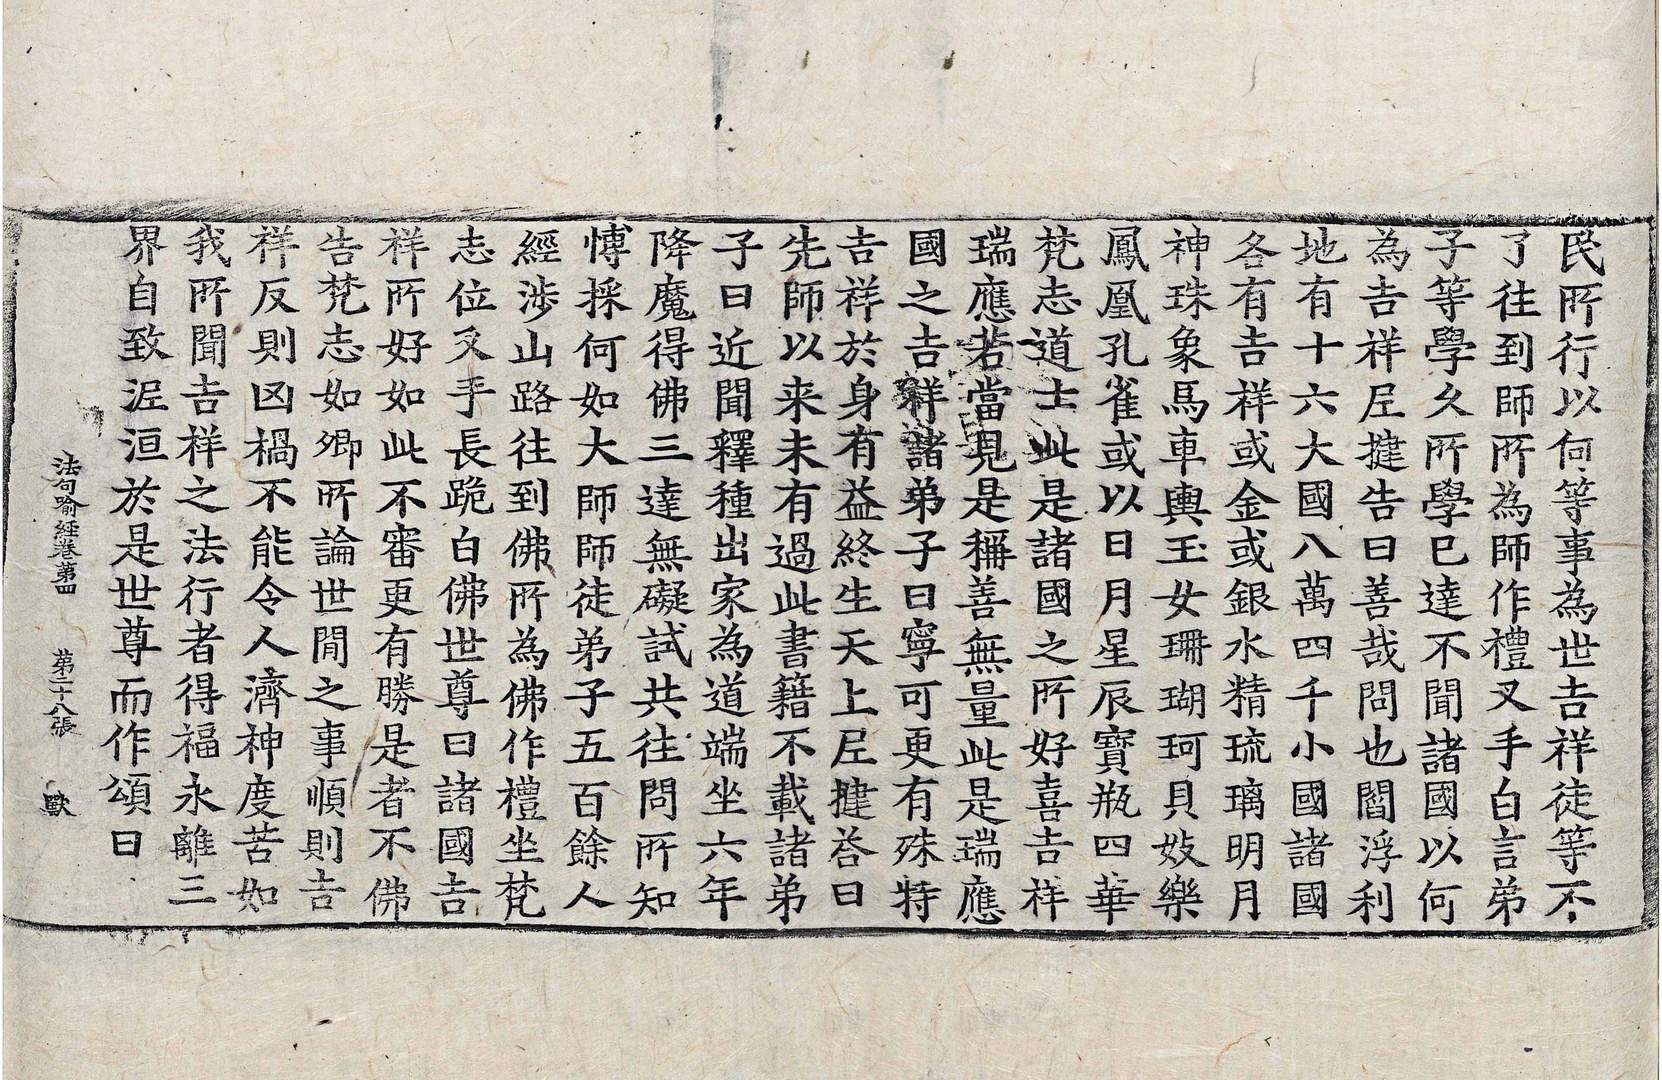 民所行以何等事為世吉祥徒等不
了往到師所為師作禮叉手白言弟
子等學久所學已達不聞諸國以何
為吉祥𡰱揵告曰善哉問也閻浮利
地有十六大國八萬四千小國諸國
各有吉祥或金或銀水精琉璃明月
神珠象馬車輿玉女珊瑚珂貝妓樂
鳳凰孔雀或以日月星辰寶瓶四華
梵志道士此是諸國之所好喜吉祥
瑞應若當見是稱善無量此是瑞應
國之吉祥諸弟子曰寧可更有殊特
吉祥於身有益終生天上𡰱揵荅曰
先師以来未有過此書籍不載諸弟
子曰近聞釋種出家為道端坐六年
降魔得佛三達無礙試共往問所知
愽採何如大師師徒弟子五百餘人
經涉山路往到佛所為佛作禮坐梵
志位叉手長跪白佛世尊曰諸國吉
祥所好如此不審更有勝是者不佛
告梵志如卿所論世間之事順則吉
祥反則凶禍不能令人濟神度苦如
我所聞吉祥之法行者得福永離三
界自致泥洹於是世尊而作頌曰
法句喻經卷第四 第二十八張 歐